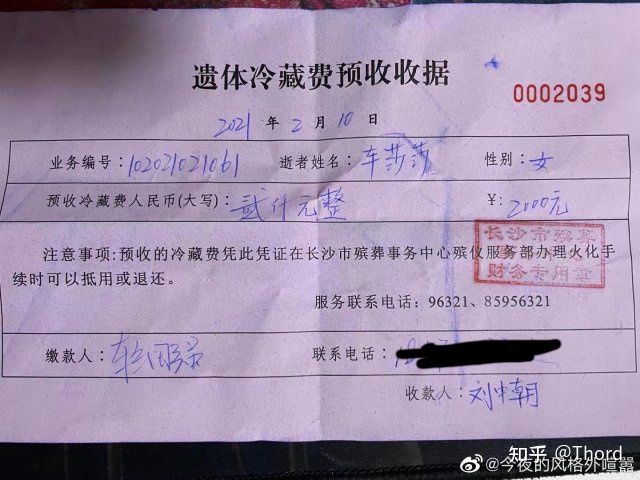 遗体冷藏费预收收据
0002039
2021 年 2 月 10 日
业务编号: 102021021061 逝者姓名: 车莎莎 性别: 女
预收冷藏费人民币(大写): 贰仟元整 ¥: 2000元
注意事项:预收的冷藏费凭此凭证在长沙市殡葬事务中心殡仪服务部办理火化手
续时可以抵用或退还。
长沙市殡葬
财务专用章
服务联系电话: 96321、85956321
缴款人: 联系电话:
收款人: 刘中朝
知乎 @Thord
@今夜的风格外喧嚣